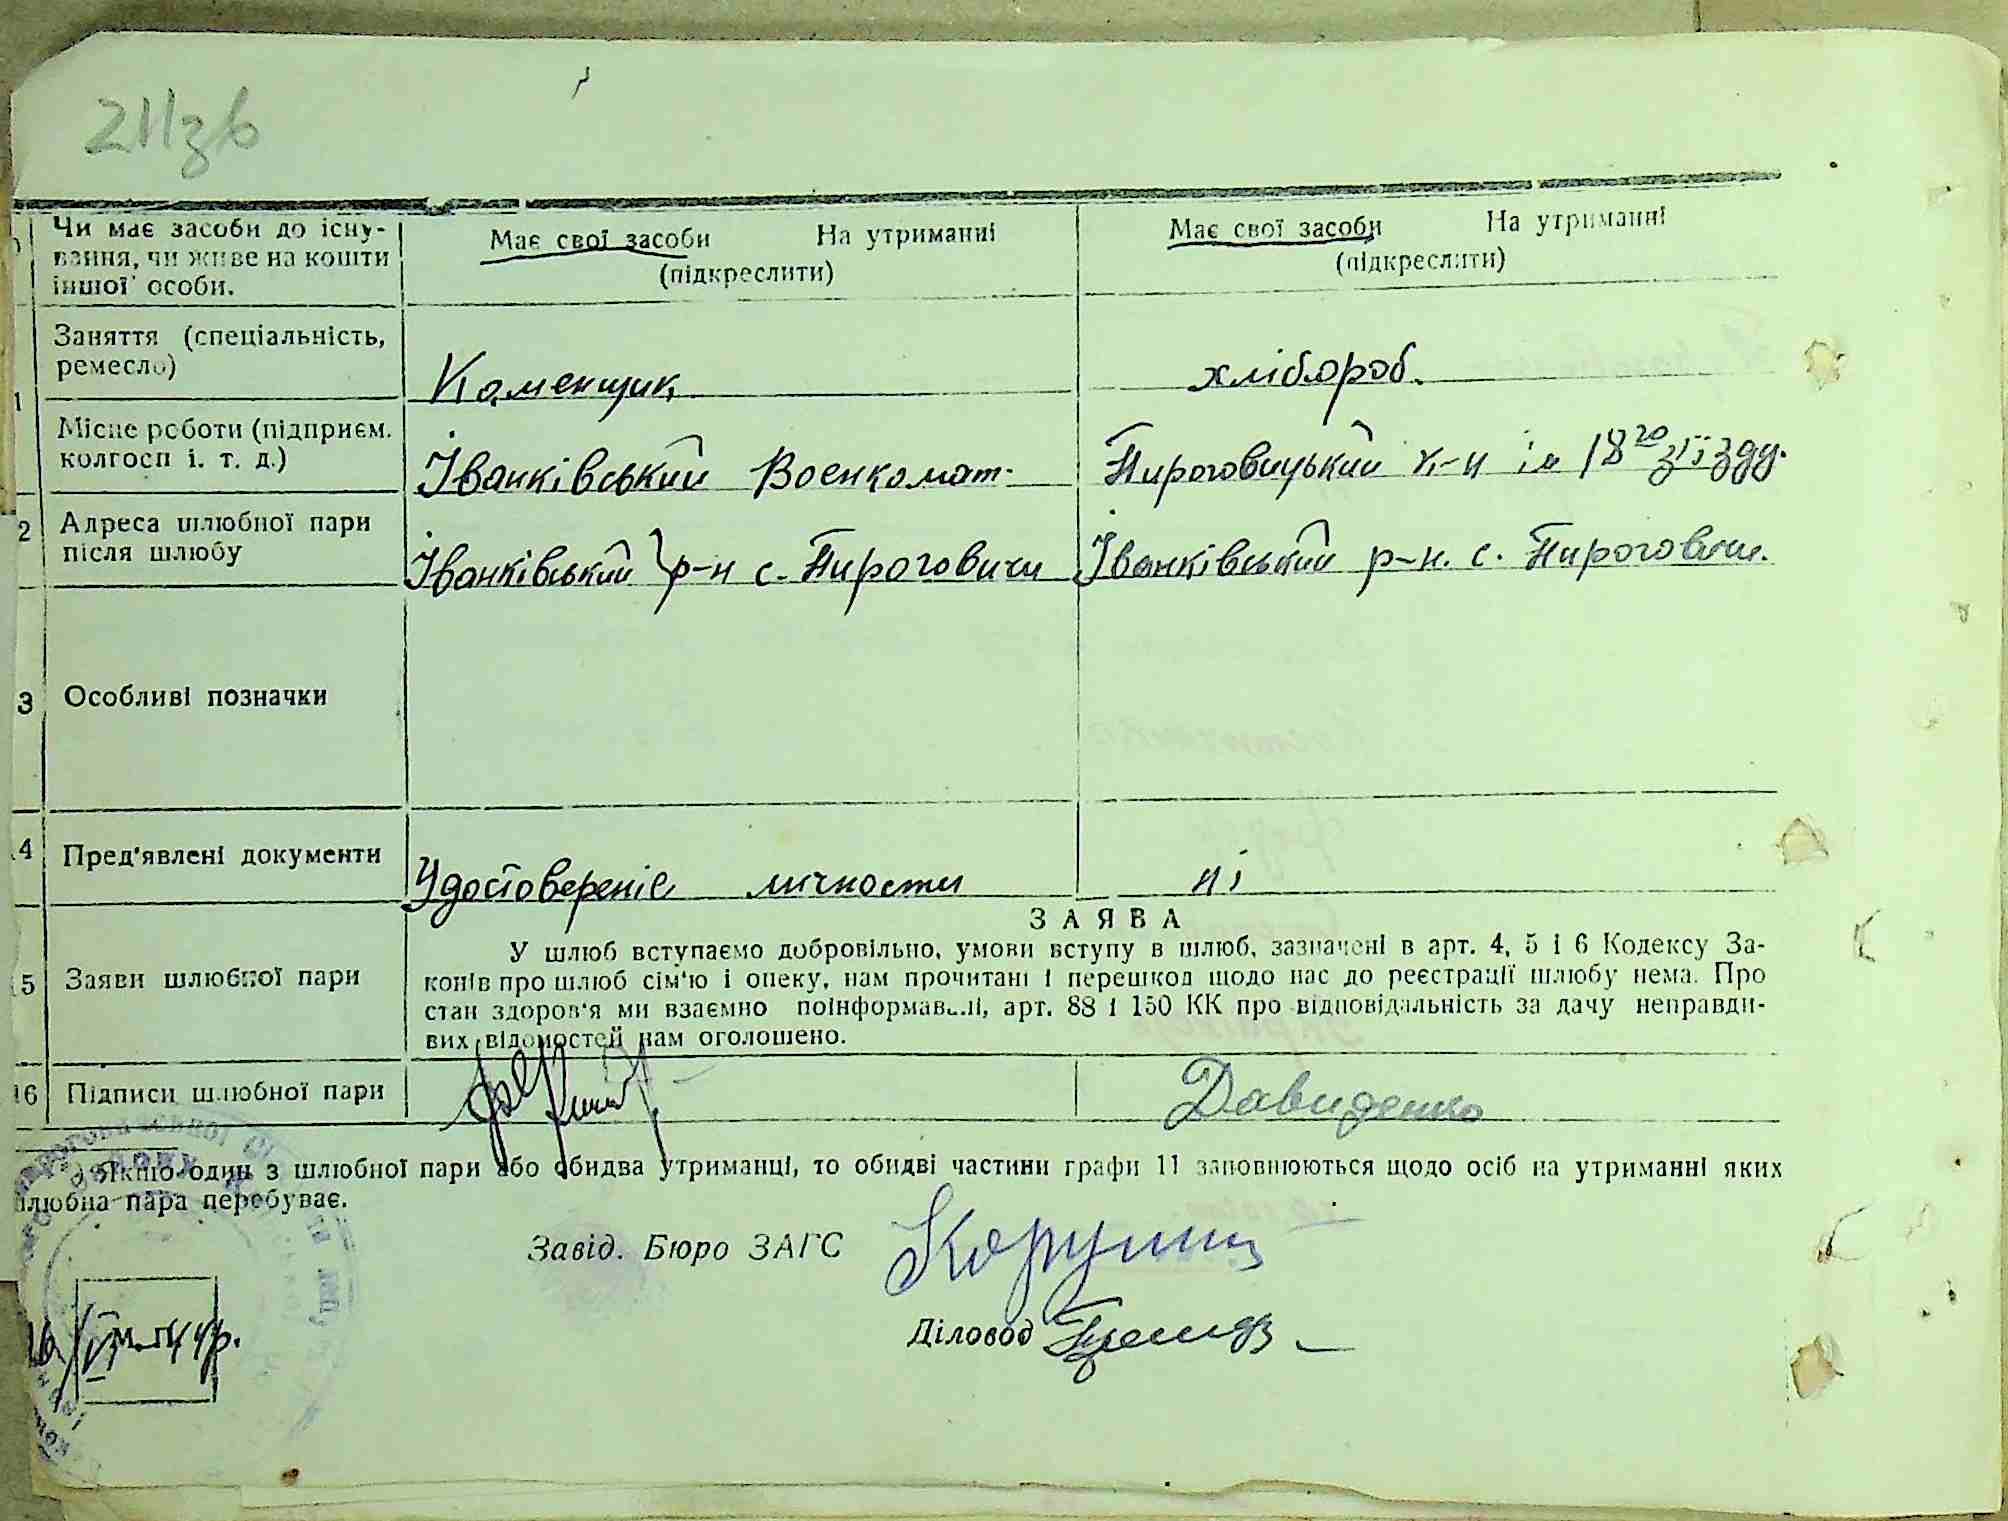 211зв
Чи має засоби до існу-
вання, чи живе на кошти
іншої особи.
Має свої засоби На утриманні
(підкреслити)
Має свої засоби На утриманні
(підкреслити)
1 Заняття (спеціальність,
ремесло)
Каменщик
хлібороб.
Місце роботи (підприєм.
колгосп і. т. д.)
Іванківський Военкомат.
Пироговицький к-п ім 18го з'їзду.
2 Адреса шлюбної пари
після шлюбу
Іванківський р-н с. Пироговичи
Іванківський р-н. с. Пироговичи.
3 Особливі позначки
4 Пред'явлені документи
Удостовереніе личности
ні
ЗАЯВА
5 Заяви шлюбної пари
У шлюб вступаємо добровільно, умови вступу в шлюб, зазначені в арт. 4, 5 і 6 Кодексу За-
конів про шлюб сім'ю і опеку, нам прочитані і перешкод щодо нас до реєстрації шлюбу нема. Про
стан здоров'я ми взаємно поінформавані, арт. 88 і 150 КК про відповідальність за дачу неправди-
вих відомостей нам оголошено.
16 Підписи шлюбної пари
Давиденко
Якщо один з шлюбної пари або обидва утриманці, то обидві частини графи 11 заповнюються щодо осіб на утриманні яких
шлюбна пара перебуває.
Завід. Бюро ЗАГС
Діловод
М. П.